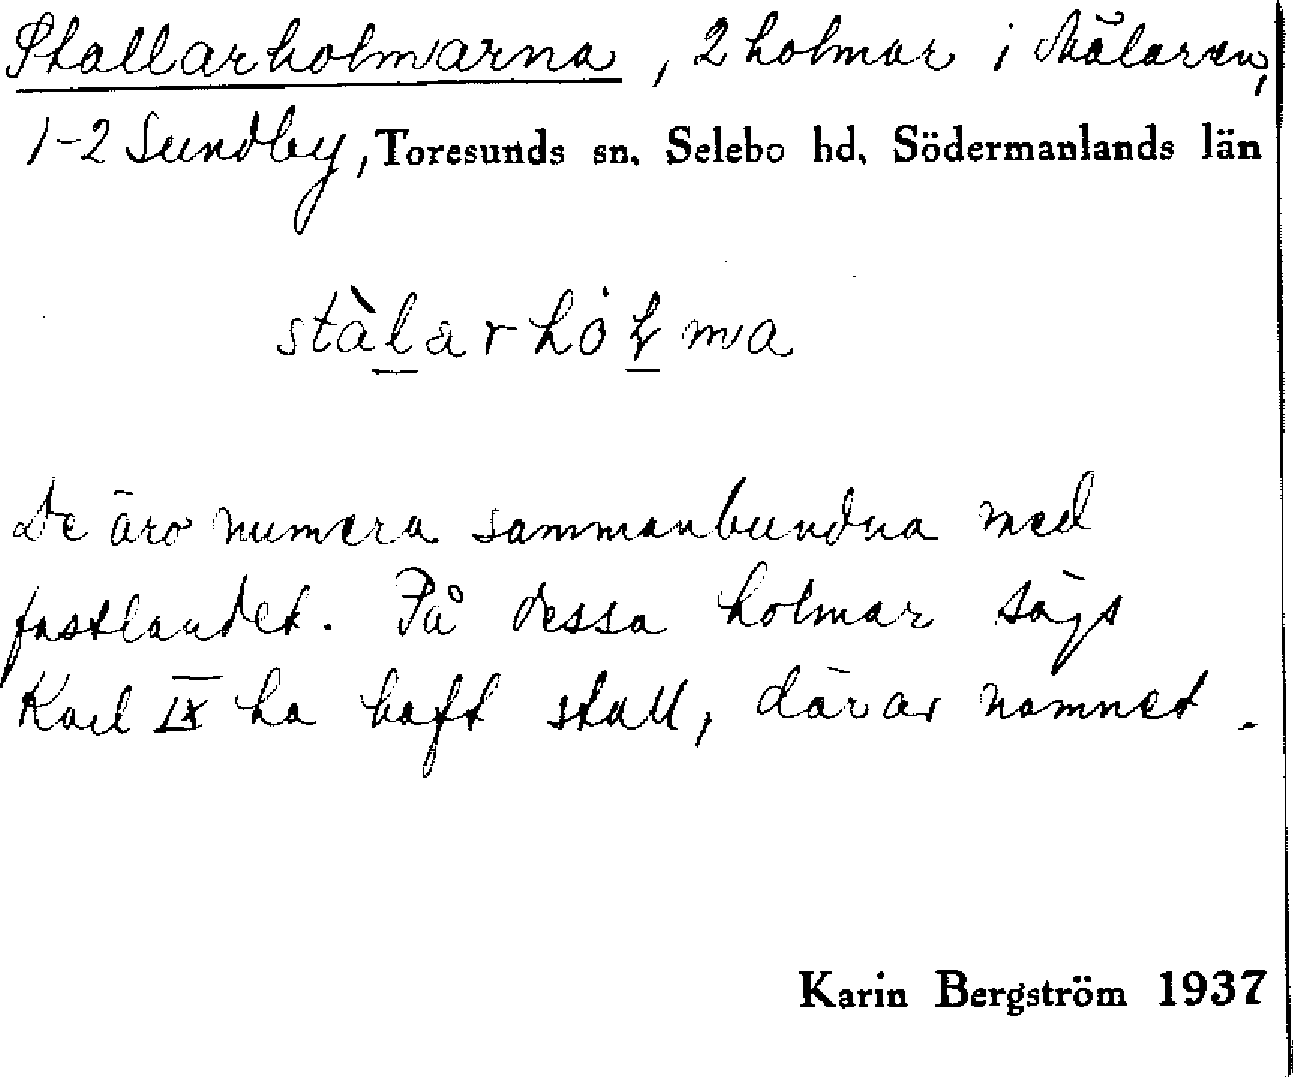 Stallarholmarna, 2 holmar i Mälaren,
1-2 Sundby, Toresunds sn. Selebo hd. Södermanlands län
stàlarhólma
De äro numera sammanbundna med
fastlandet. På dessa holmar sägs
Karl IX ha haft stall, därav namnet.
Karin Bergström 1937